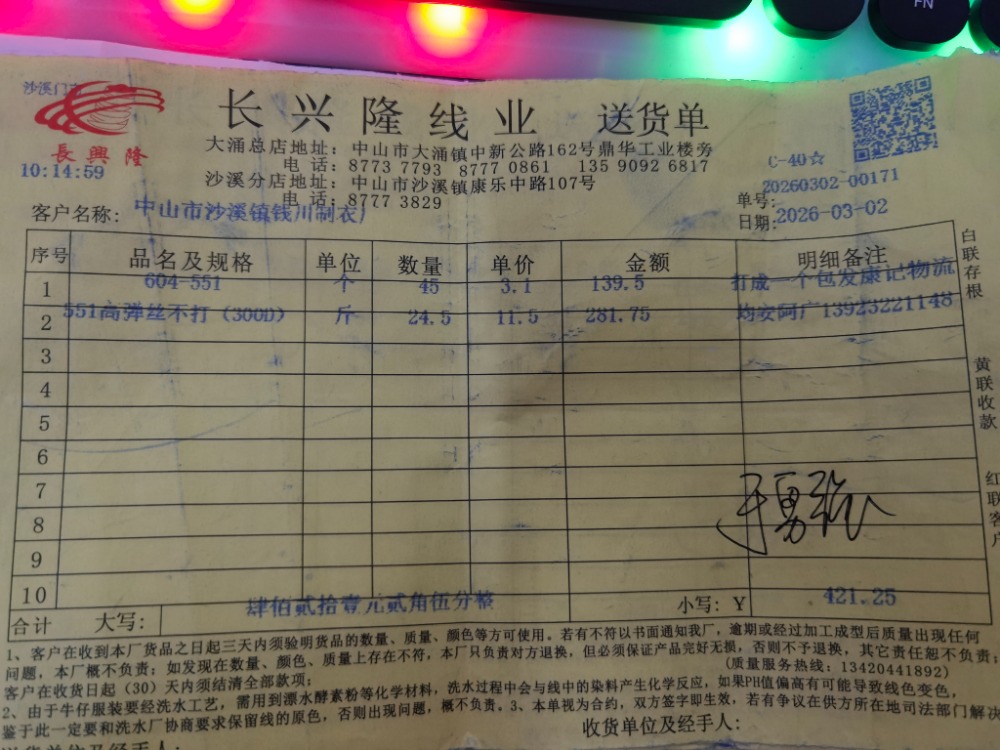 FN
沙溪门市
長興隆
10:14:59
长兴隆线业 送货单
大涌总店地址：中山市大涌镇中新公路162号鼎华工业楼旁
电话：8773 7793 8777 0861 135 9092 6817
沙溪分店地址：中山市沙溪镇康乐中路107号
电话：8777 3829
C-40☆
单号：20260302-00171
日期：2026-03-02
客户名称：中山市沙溪镇钱川制衣厂
序号 品名及规格 单位 数量 单价 金额 明细备注
1 604-551 个 45 3.1 139.5 打成一个包发康记物流
2 551高弹丝不打（300D） 斤 24.5 11.5 281.75 均安阿广13923221148
3
4
5
6
7
8
9
10
合计 大写：肆佰贰拾壹元贰角伍分整 小写：Y 421.25
白联存根
黄联收款
红联客户
1、客户在收到本厂货品之日起三天内须验明货品的数量、质量、颜色等方可使用。若有不符以书面通知我厂，逾期或经过加工成型后质量出现任何
问题，本厂概不负责；如发现在数量、颜色、质量上存在不符，本厂只负责对方退换，但必须保证产品完好无损，否则不予退换，其它责任恕不负责；
（质量服务热线：13420441892）
客户在收货日起（30）天内须结清全部款项；
2、由于牛仔服装要经洗水工艺，需用到漂水酵素粉等化学材料，洗水过程中会与线中的染料产生化学反应，如果PH值偏高有可能导致线色变色，
鉴于此一定要和洗水厂协商要求保留线的原色，否则出现问题，概不负责。3、本单视为合约，双方签字即生效，若有争议在供方所在地司法部门解决
送货单位及经手人： 收货单位及经手人：